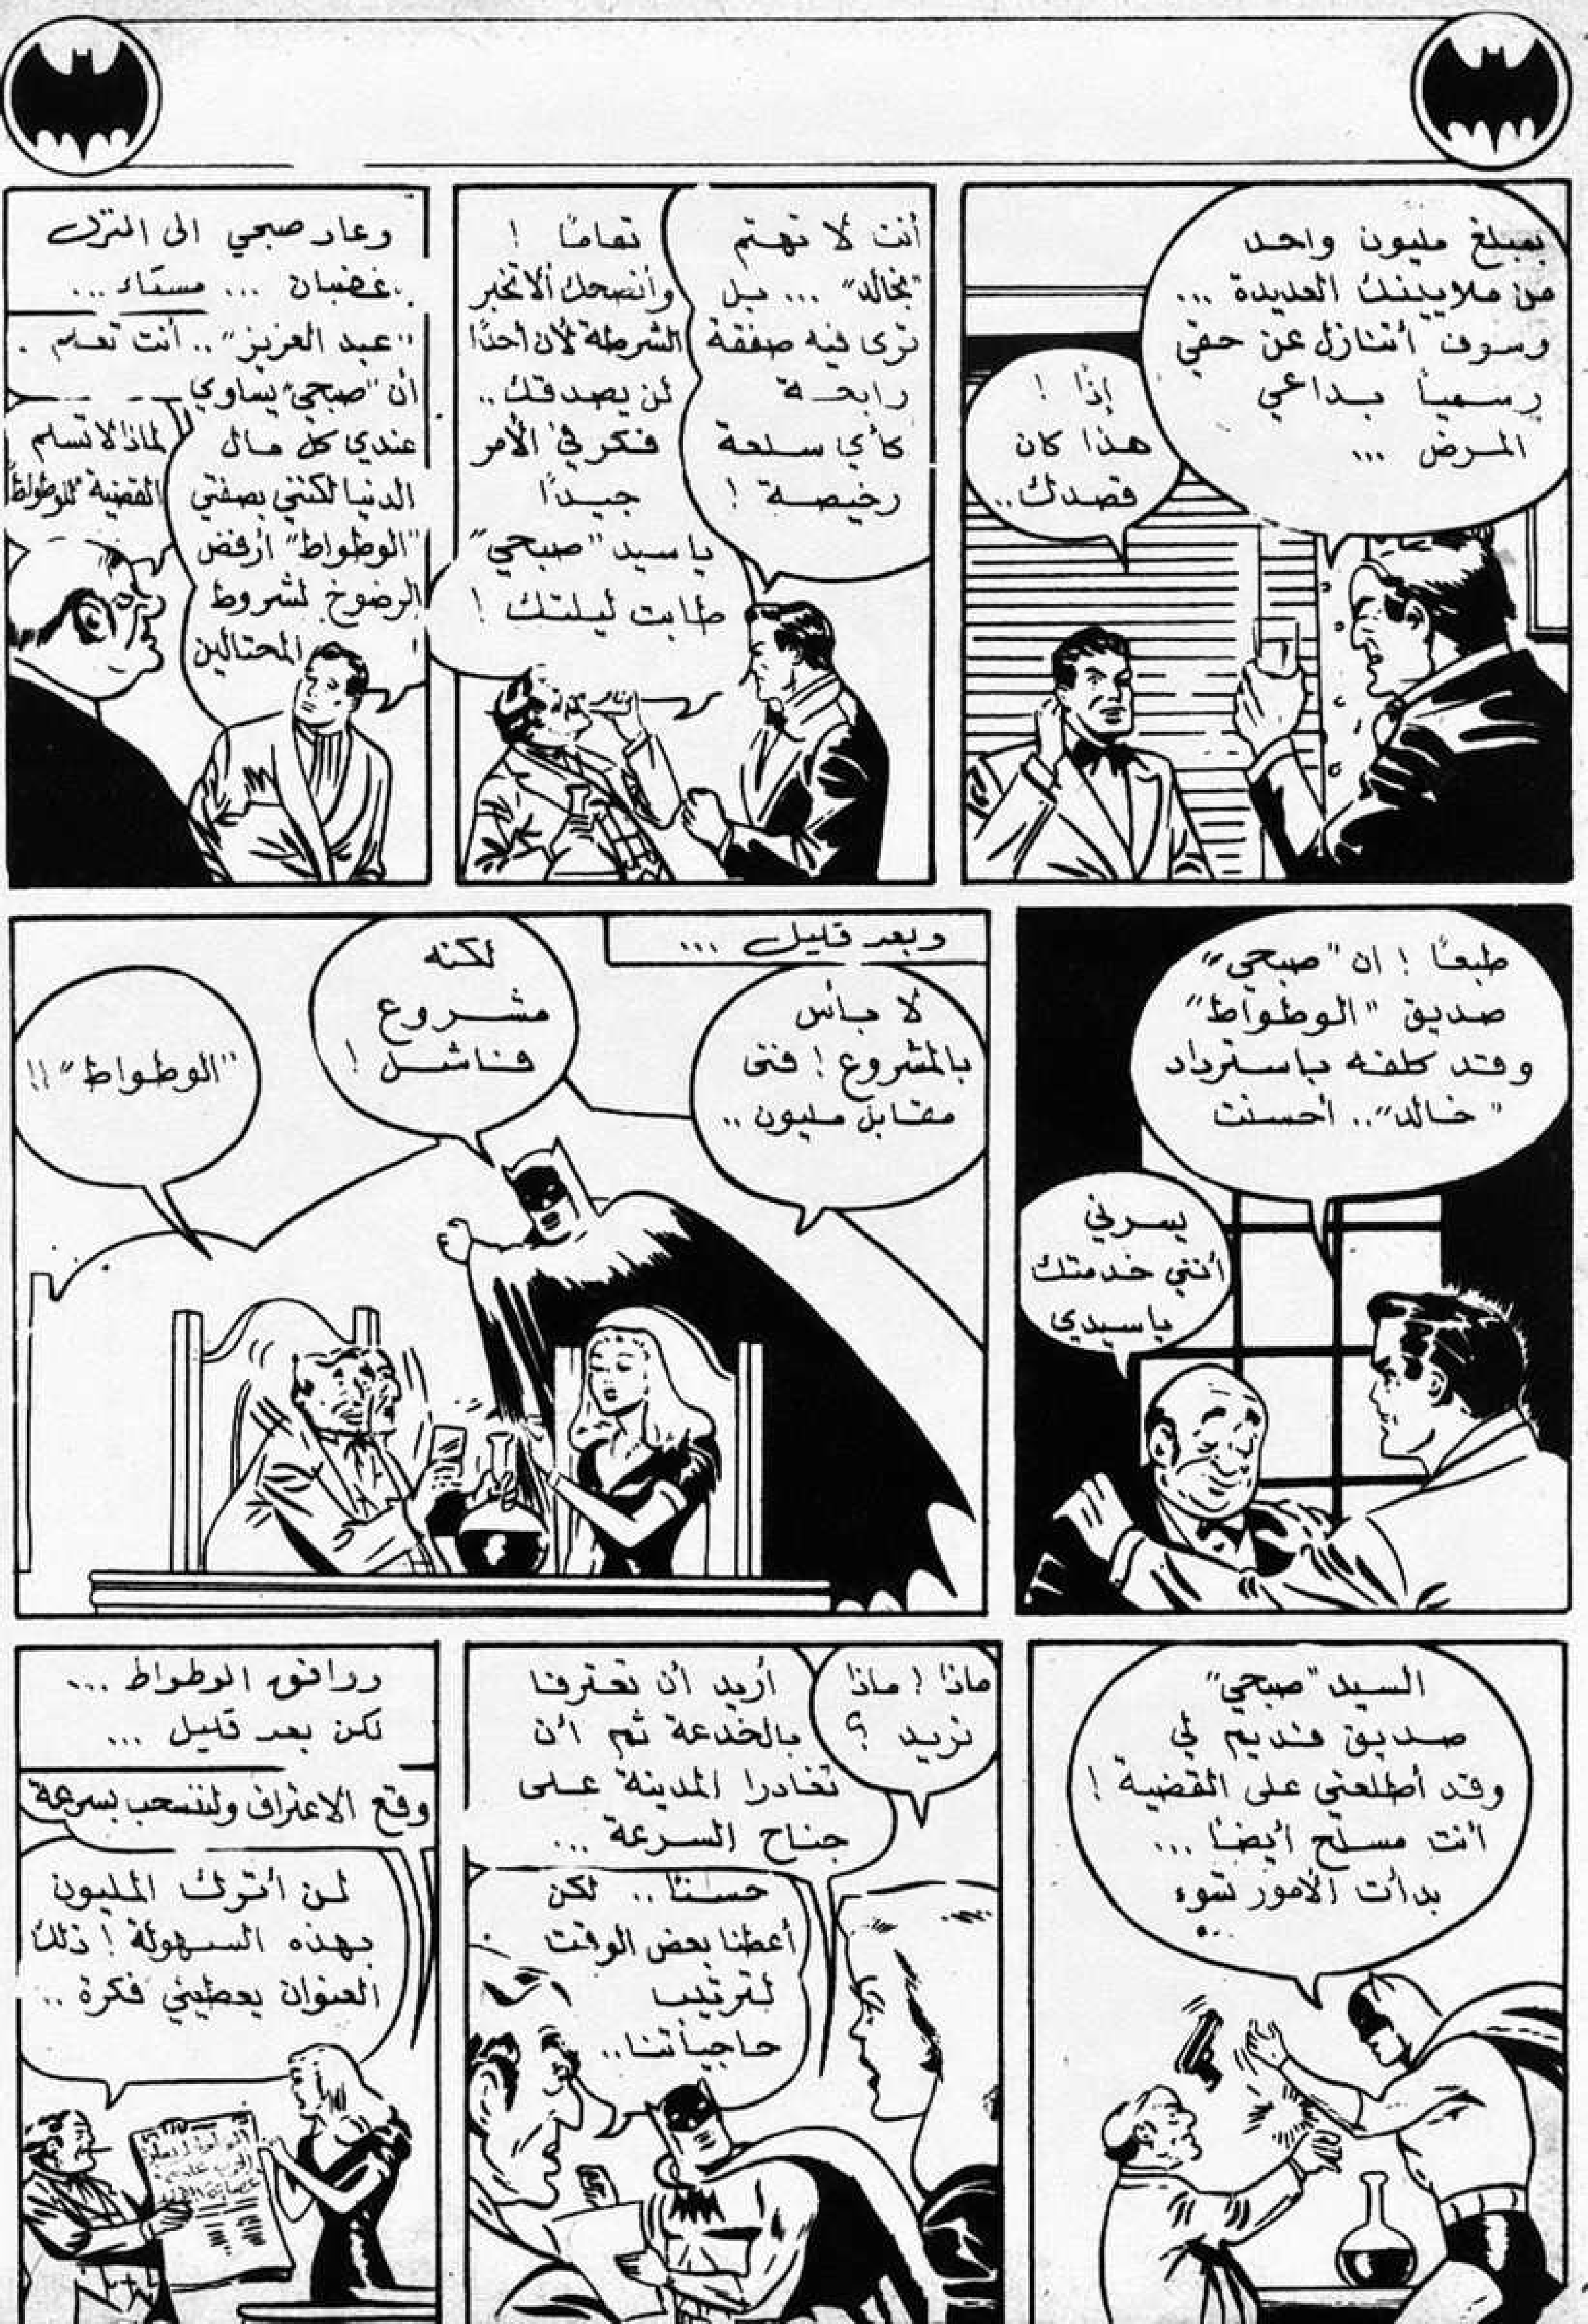 بمبلغ مليون واحد
من ملايينك العديدة ...
وسوف أتنازل عن حقي
رسمياً بداعي
المرض ...
إذًا !
هذا كان
قصدك..
أنت لا تهتم
"بخالد" ... بل
ترى فيه صفقة
رابحة
كأي سلعة
رخيصة !
تمامًا !
وأنصحك ألا تخبر
الشرطة لأن أحدًا
لن يصدقك ..
فكر في الأمر
جيدًا
يا سيد "صبحي"
طابت ليلتك !
وعاد صبحي الى المنزل
غضبان ... مستاء ...
"عبد العزيز" .. أنت تعلم
أن "صبحي" يساوي
عندي كل مال
الدنيا لكنني بصفتي
"الوطواط" أرفض
الرضوخ لشروط
المحتالين
!
لماذا لا تسلم
القضية للوطواط
طبعًا ! ان "صبحي"
صديق "الوطواط"
وقد كلفه باسترداد
"خالد".. أحسنت
يسرني
أنني خدمتك
يا سيدي
وبعد قليل ...
لا بأس
بالمشروع ! فتى
مقابل مليون ..
لكنه
مشروع
فاشل !
"الوطواط" !!
السيد "صبحي"
صديق قديم لي
وقد أطلعني على القضية !
أنت مسلّح أيضًا ...
بدأت الأمور تسوء
...
ماذا ! ماذا
تريد ؟
أريد أن تعترفا
بالخدعة ثم أن
تغادرا المدينة على
جناح السرعة ...
حسنًا .. لكن
أعطنا بعض الوقت
لترتيب
حاجياتنا..
ووافق الوطواط ...
لكن بعد قليل ...
وقع الاعتراف ولننسحب بسرعة
لن أترك المليون
بهذه السهولة ! ذلك
العنوان يعطيني فكرة ..